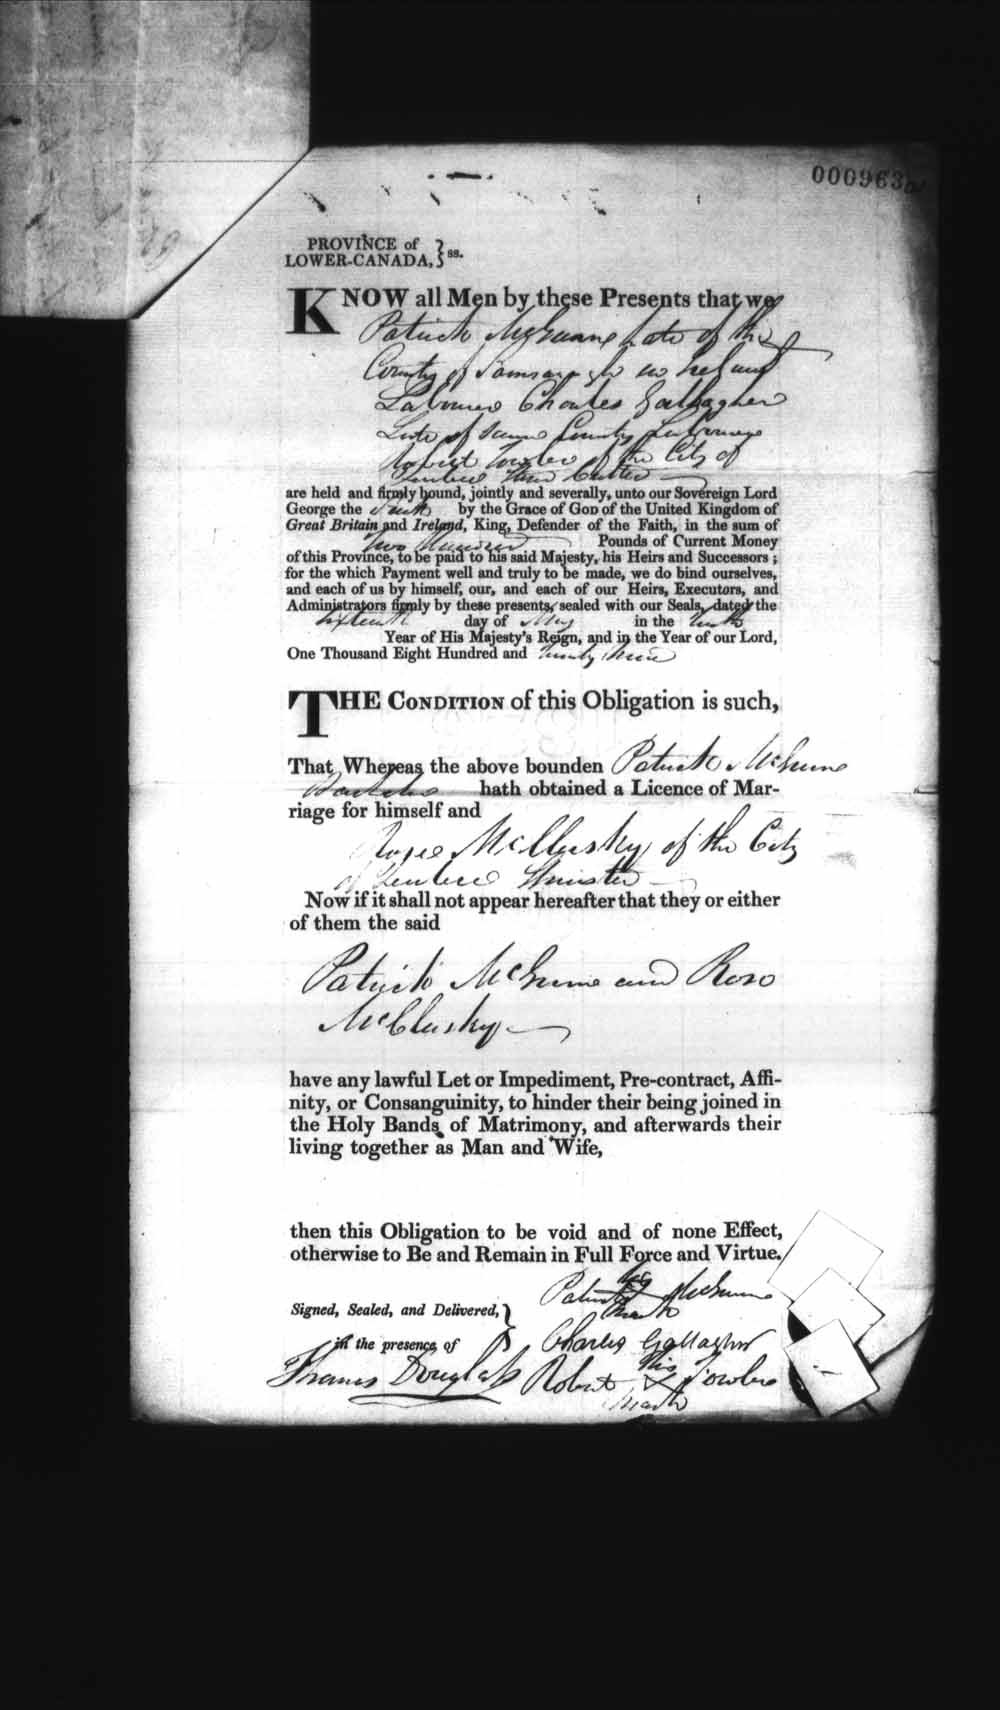 000963
PROVINCE of
LOWER-CANADA, } ss.
KNOW all Men by these Presents that we
Patrick McGuone late of the
County of in Ireland
Labourer Charles Gallagher
Late of Same County Labourer
Robert Towler of the City of
Quebec Stone Cutter
are held and firmly bound, jointly and severally, unto our Sovereign Lord
George the Fourth by the Grace of GOD of the United Kingdom of
Great Britain and Ireland, King, Defender of the Faith, in the sum of
Two Hundred Pounds of Current Money
of this Province, to be paid to his said Majesty, his Heirs and Successors ;
for the which Payment well and truly to be made, we do bind ourselves,
and each of us by himself, our, and each of our Heirs, Executors, and
Administrators firmly by these presents, sealed with our Seals, dated the
sixteenth day of May in the tenth
Year of His Majesty's Reign, and in the Year of our Lord,
One Thousand Eight Hundred and twenty nine
THE CONDITION of this Obligation is such,
That Whereas the above bounden Patrick McGuone
Bachelor hath obtained a Licence of Mar-
riage for himself and
Rose McClusky of the City
of Quebec Spinster
Now if it shall not appear hereafter that they or either
of them the said
Patrick McGuone and Rose
McClusky
have any lawful Let or Impediment, Pre-contract, Affi-
nity, or Consanguinity, to hinder their being joined in
the Holy Bands of Matrimony, and afterwards their
living together as Man and Wife,
then this Obligation to be void and of none Effect,
otherwise to Be and Remain in Full Force and Virtue.
his
Patrick X McGuone
mark
Signed, Sealed, and Delivered, }
in the presence of
Charles Gallagher
Thomas Douglass
his
Robert X Towler
mark